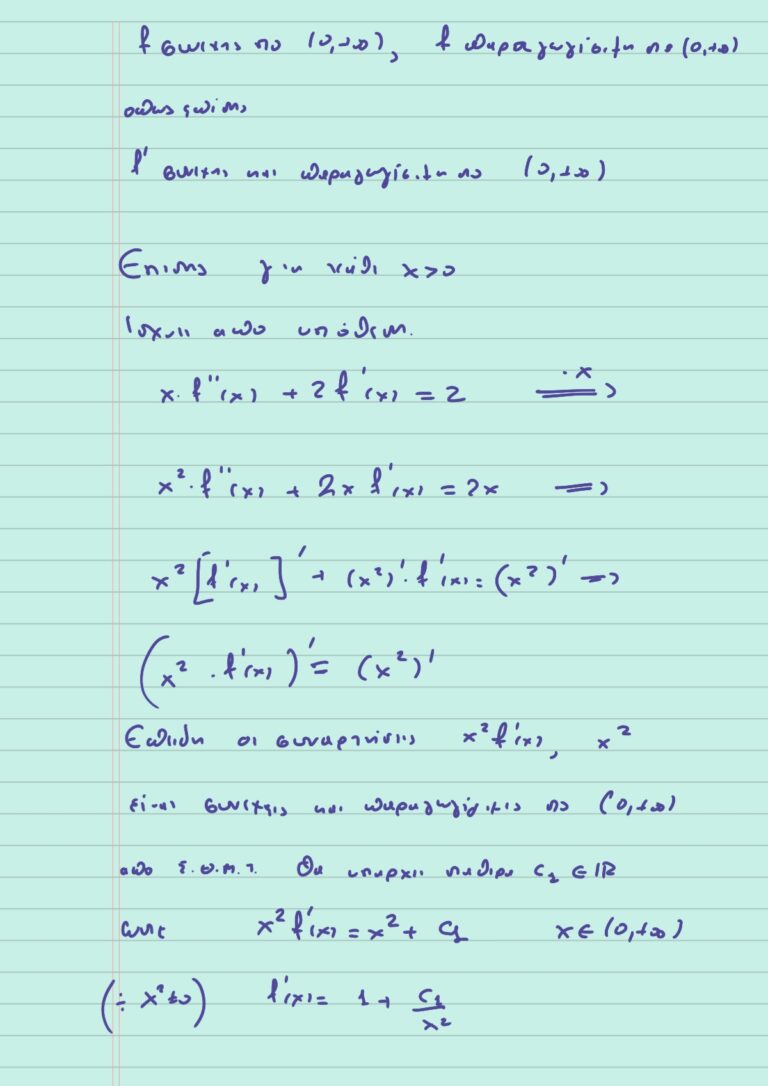 f συνεχης στο (0,+∞), f παραγωγίσιμη στο (0,+∞)
οπως επίσης
f' συνεχης και παραγωγίσιμη στο (0,+∞)
Επισης για κάθε x>0
Ισχυει απο υπόθεση.
x·f''(x) + 2f'(x) = 2 =·x=>
x²·f''(x) + 2x f'(x) = 2x =>
x²[f'(x)]' + (x²)'·f'(x) = (x²)' =>
(x²·f'(x))' = (x²)'
Επειδη οι συναρτησεις x²f'(x), x²
ειναι συνεχεις και παραγωγίσιμες στο (0,+∞)
απο Σ.Θ.Μ.Τ. Θα υπαρχει σταθερα c₁ ∈ ℝ
ωστε x²f'(x) = x² + c₁ x ∈ (0,+∞)
(÷ x²≠0) f'(x) = 1 + c₁/x²